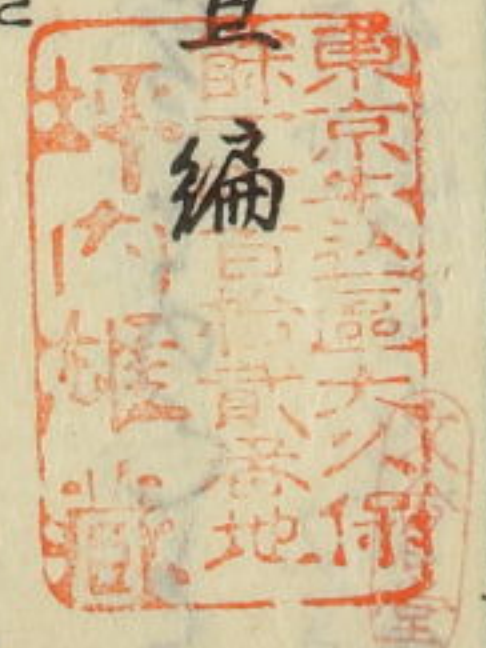 東京牛込區大久保
餘丁町百拾貳番地
坪内雄藏
編